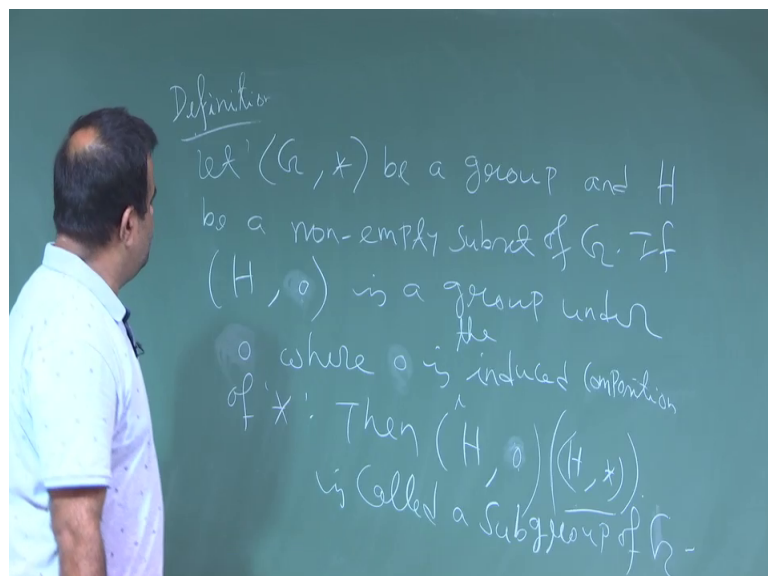 Definition
Let (G, *) be a group and H
be a non-empty subset of G. If
(H, o) is a group under
o where o is the induced Composition
of '*'. Then (H, o) ((H, *))
is Called a Subgroup of G.